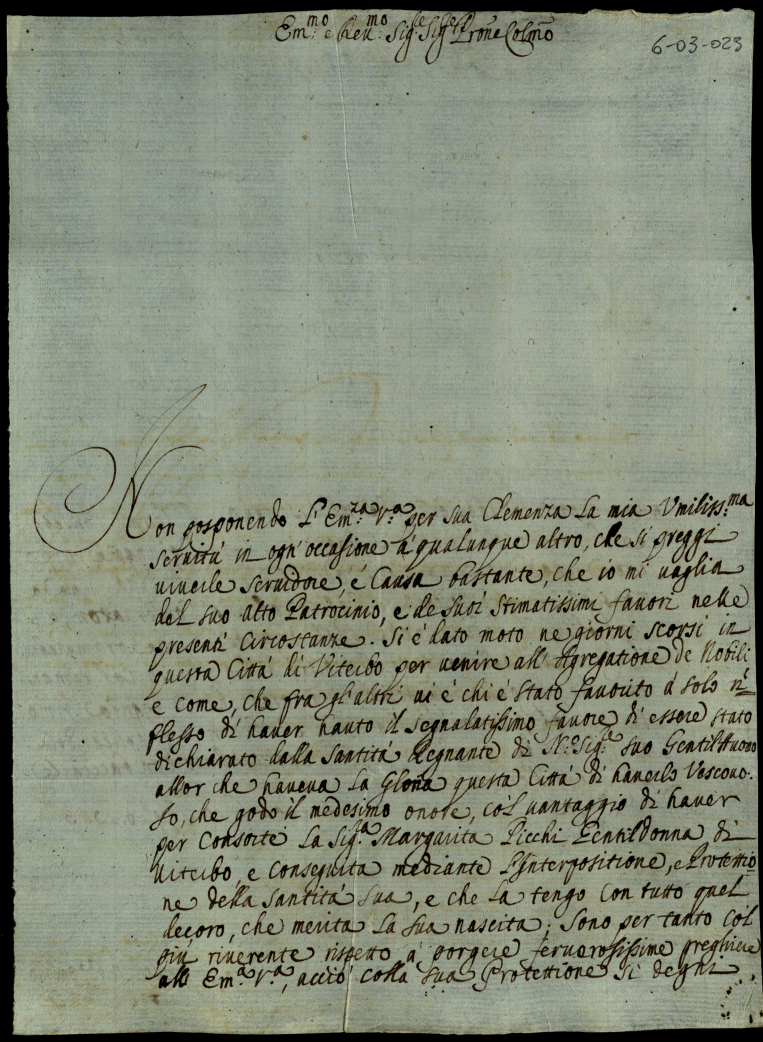 Em.mo e Rev.mo Sig.re Sig.re Prone Colmo
6-03-023
Non posponendo l'Em.za V.a per sua Clemenza la mia Umiliss.ma
servitù in ogn'occasione à qualunque altro, che si preggi
vivele servidore, é causa bastante, che io mi vaglia
del suo alto Patrocinio, e de suoi stimatissimi favori nelle
presenti circostanze. Si é dato moto ne giorni scorsi in
questa Città di Viterbo per venire all'Agregatione de Nobili
e come, che fra gl'altri vi é chi é stato favorito à solo ri=
flesso di haver hauto il segnalatissimo favore di essere stato
dichiarato dalla Santità Regnante di N.ro Sig.re suo Gentilhuomo
allor che haveva la Gloria questa Città di haverlo Vescovo.
Io, che godo il medesimo onore, col vantaggio di haver
per Consorte la Sig.ra Margarita Picchi Gentildonna di
Viterbo, e conseguita mediante l'Interpositione, e Protettio=
ne della Santità sua, e che la tengo con tutto quel
decoro, che merita la sua nascita; Sono per tanto col
più riverente rispetto à porgere fervorosissime preghiere
all'Em.a V.a, acciò colla sua Protettione si degni